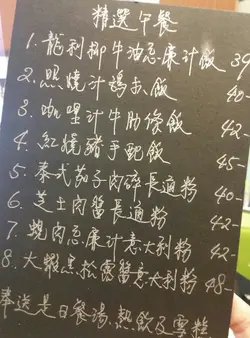 精選午餐
1. 龍利柳牛油忌廉汁飯 39
2. 照燒汁鷄扒飯 40-
3. 咖哩汁牛肋條飯 42-
4. 紅燒豬手配飯 45-
5. 泰式茄子肉碎長通粉 40-
6. 芝士肉醬長通粉 42-
7. 蜆肉忌廉汁意大利粉 42-
8. 大蝦黑松露醬意大利粉 48-
奉送是日餐湯、熱飲及雪糕